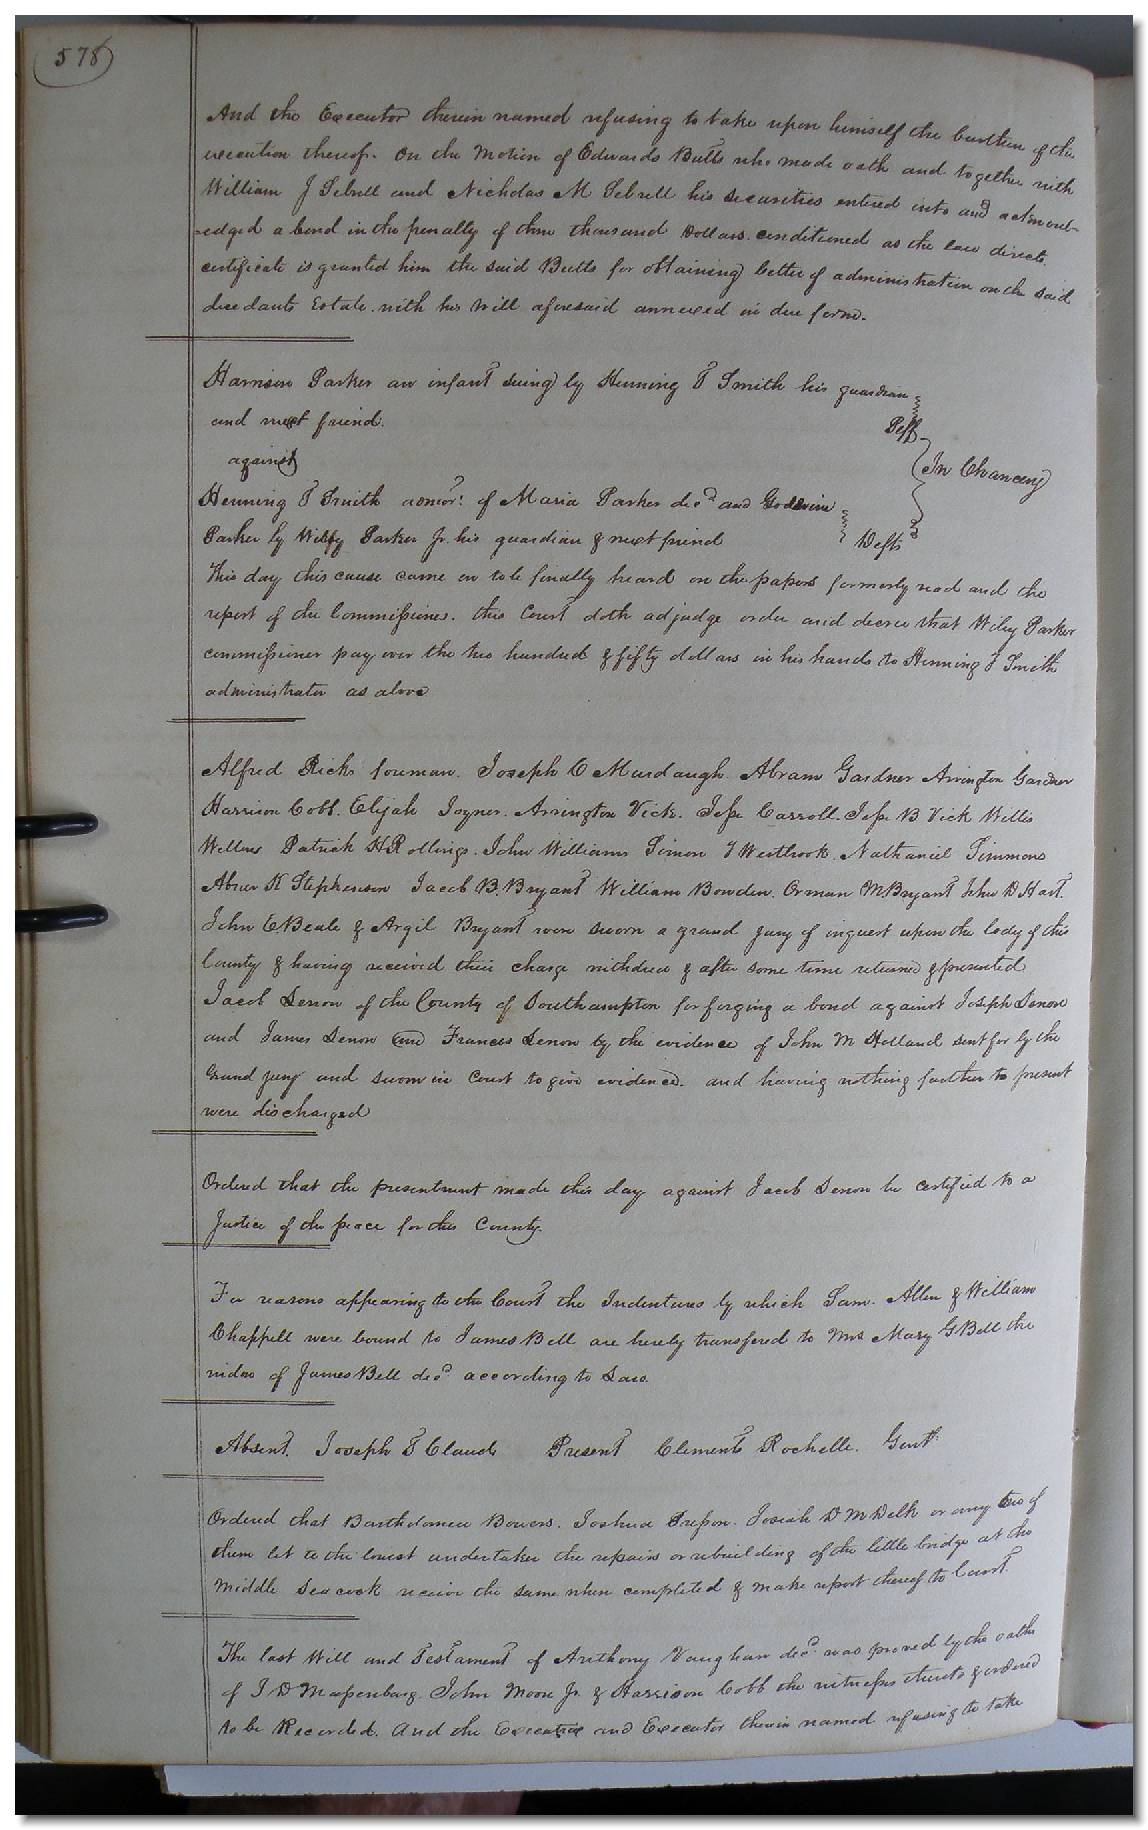 578
And the Executor therein named refusing to take upon himself the burthen of the
execution thereof. On the Motion of Edwards Butts who made oath and together with
William J Sebrell and Nicholas M Sebrell his securities entered into and acknowl-
-edged a bond in the penalty of three thousand Dollars conditioned as the law directs.
certificate is granted him the said Butts for obtaining letters of administration on the said
decedants Estate with his will aforesaid annexed in due form.
Harrison Parker an infant suing by Henning T Smith his guardian
and next friend.
Plff
against
In Chancery
Henning T Smith admor: of Maria Parker decd and Godwin
Parker by Wiley Parker Jr. his guardian & next friend
Defts
This day this cause came on to be finally heard on the papers formerly read and the
report of the Commissioner. this Court doth adjudge order and decree that Wiley Parker
commissioner pay over the two hundred & fifty dollars in his hands to Henning T Smith
administrator as above
Alfred Ricks foreman. Joseph C Murdaugh. Abram Gardner Arrington Gardner
Harrison Cobb. Elijah Joyner. Arrington Vick. Jesse Carroll. Jesse B Vick Willis
Patrick H Rollings. John Williams Simon T Westbrook. Nathaniel Simmons
Abner K Stephenson Jacob B. Bryant William Bowden. Orman M Bryant John D Hart.
John E Beale & Argil Bryant were sworn a grand jury of inquest upon the body of this
County & having received their charge withdrew & after some time returned & presented
Jacob Denson of the County of Southampton for forging a bond against Joseph Denson
and James Denson and Frances Denson by the evidence of John M Holland sent for by the
Grand jury and sworn in court to give evidence. and having nothing further to present
were discharged
Ordered that the presentment made this day against Jacob Denson be certified to a
Justice of the peace for this County.
For reasons appearing to the Court the Indentures by which Sam. Allen & William
Chappell were bound to James Bell are hereby transfered to Mrs Mary G Bell the
widow of James Bell decd according to Law.
Absent. Joseph T Claud Present Clements Rochelle. Gent.
Ordered that Bartholomew Bowers. Joshua Josiah D M Delk or any two of
them let to the lowest undertaker the repairs or rebuilding of the little bridge at the
middle Seacock receive the same when completed & make report thereof to Court.
The last Will and Testament of Anthony Vaughan decd was proved by the oaths
of J D Massenburg. John Moore Jr. & Harrison Cobb the witnesses thereto & ordered
to be Recorded. And the Executrix and Executor therein named refusing to take